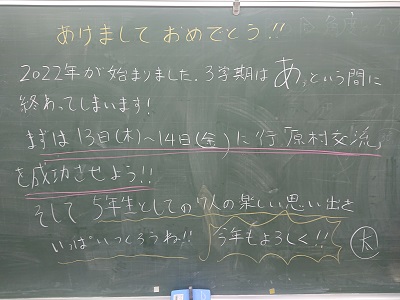 あけまして おめでとう!!
2022年が始まりました。3学期は あっという間に
終わってしまいます!
まずは13日(木)～14日(金)に行く「原村交流」
を成功させよう!!
そして 5年生としての7人の楽しい思い出を
いっぱいつくろうね!! 今年もよろしく!!
太